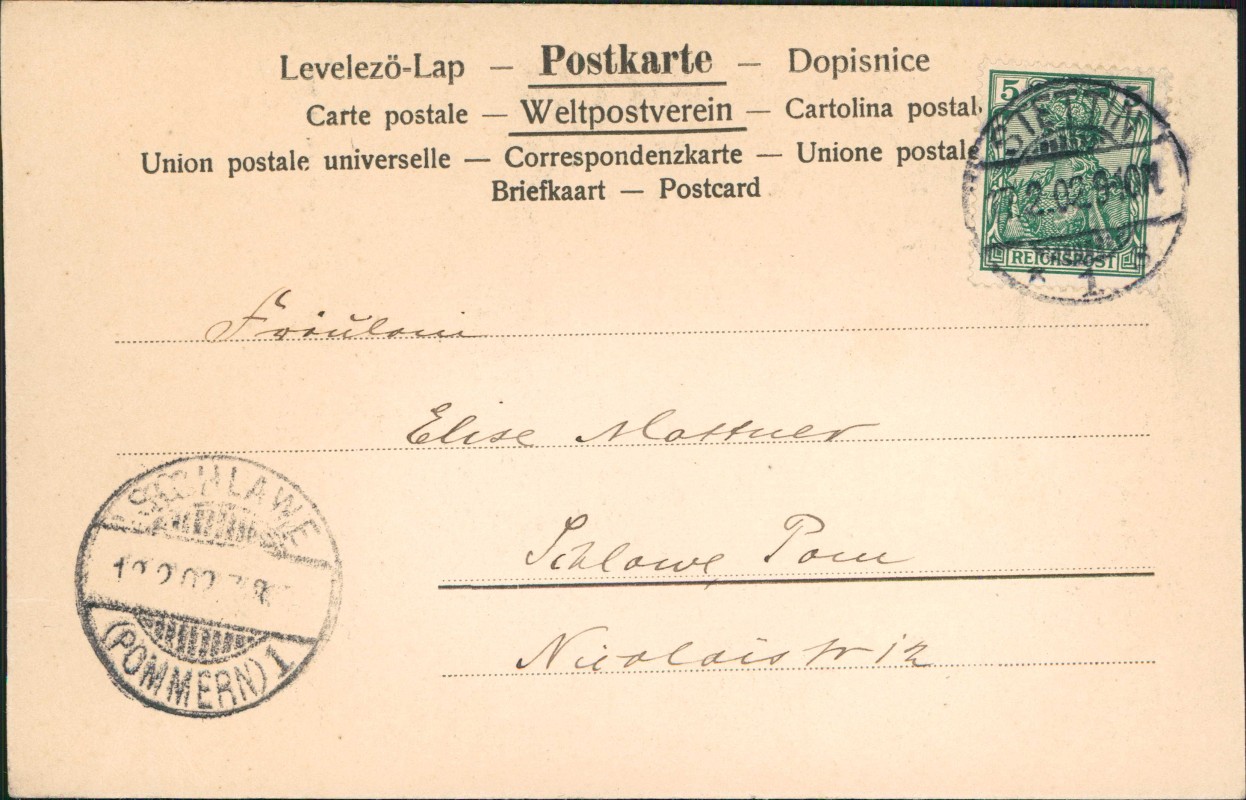 Levelezö-Lap — Postkarte — Dopisnice
Carte postale — Weltpostverein — Cartolina postal
Union postale universelle — Correspondenzkarte — Unione postale
Briefkaart — Postcard
5
STETTIN
2.02.9-10N
REICHSPOST
* 1
Fräulein
Elise Mattner
Schlawe Pom
Nicolaistr 12
SCHLAWE
(POMMERN) 1